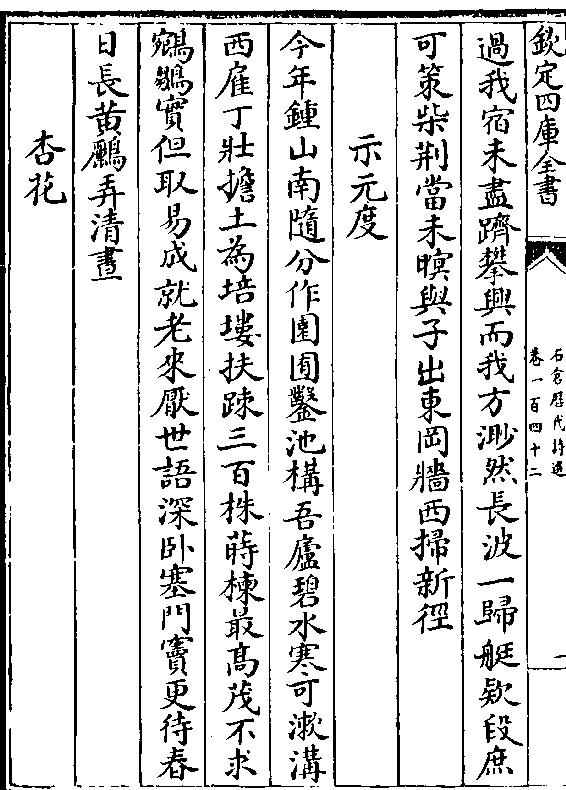 欽定四庫全書
石倉歷代詩選
卷一百四十二
過我宿未盡躋攀興而我方渺然長波一歸艇欵段庶
可策柴荆當未暝與子出東岡牆西掃新徑
示元度
今年鍾山南隨分作園囿鑿池構吾廬碧水寒可漱溝
西雇丁壯擔土為培塿扶踈三百株蒔楝最高茂不求
鵷鶵實但取易成就老來厭世語深卧塞門竇更待春
日長黃鸝弄清晝
杏花